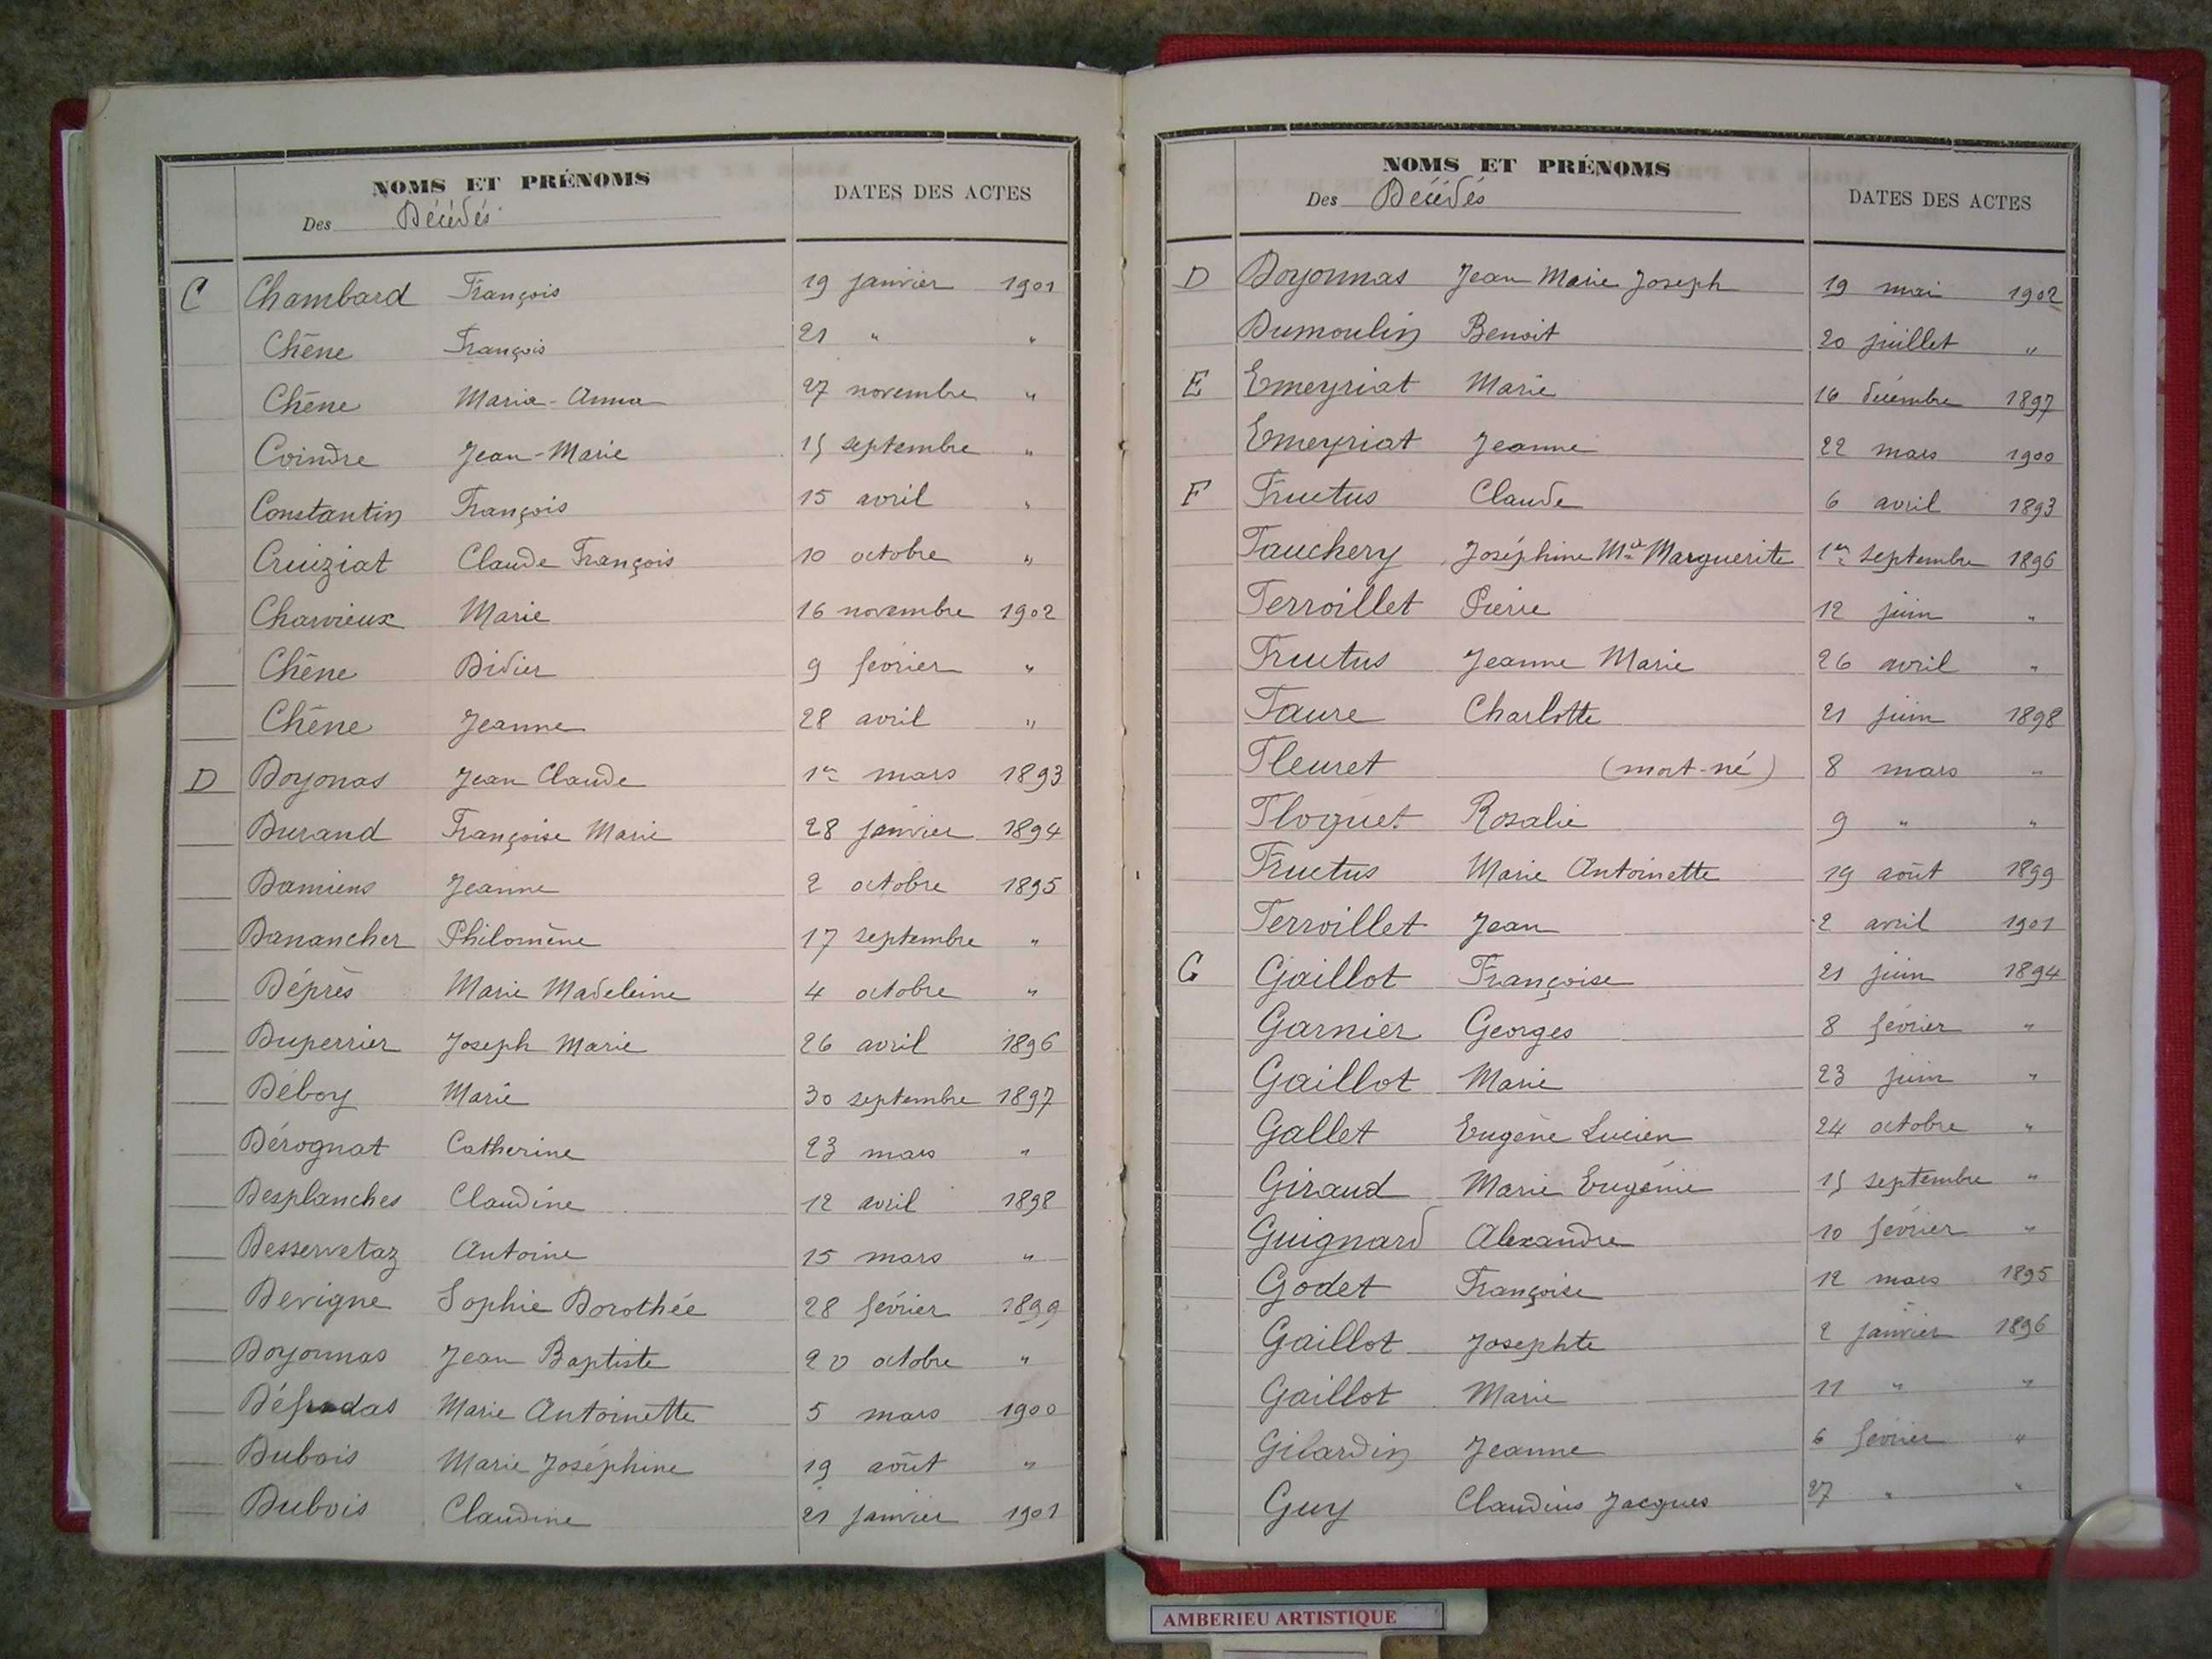 NOMS ET PRÉNOMS
Des Décédés
DATES DES ACTES
C Chambard François 19 janvier 1901
Chêne François 21 " "
Chêne Maria-Anna 27 novembre "
Coindre Jean-Marie 15 septembre "
Constantin François 15 avril "
Cruiziat Claude François 10 octobre "
Charvieux Marie 16 novembre 1902
Chêne Didier 9 février "
Chêne Jeanne 28 avril "
D Doyonas Jean Claude 1er mars 1893
Durand Françoise Marie 28 janvier 1894
Damiens Jeanne 2 octobre 1895
Danancher Philomène 17 septembre "
Déprès Marie Madeleine 4 octobre "
Duperrier Joseph Marie 26 avril 1896
Déboy Marie 30 septembre 1897
Dérognat Catherine 23 mars "
Desplanches Claudine 12 avril 1898
Desservetaz Antoine 15 mars "
Devigne Sophie Dorothée 28 février 1899
Doyonnas Jean Baptiste 20 octobre "
Marie Antoinette 5 mars 1900
Dubois Marie Joséphine 19 août "
Dubois Claudine 21 janvier 1901
NOMS ET PRÉNOMS
Des Décédés
DATES DES ACTES
D Doyonnas Jean Marie Joseph 19 mai 1902
Dumoulin Benoit 20 juillet "
E Emeyriat Marie 16 décembre 1897
Emeyriat Jeanne 22 mars 1900
F Fructus Claude 6 avril 1893
Fauchery Joséphine Mie Marguerite 1er septembre 1896
Ferroillet Pierre 12 juin "
Fructus Jeanne Marie 26 avril "
Faure Charlotte 21 juin 1898
Fleuret (mort-né) 8 mars "
Floquet Rosalie 9 " "
Fructus Marie Antoinette 19 août 1899
Ferroillet Jean 2 avril 1901
G Gaillot Françoise 21 juin 1894
Garnier Georges 8 février "
Gaillot Marie 23 juin "
Gallet Eugène Lucien 24 octobre "
Giraud Marie Eugénie 15 septembre "
Guignard Alexandre 10 février "
Godet Françoise 12 mars 1895
Gaillot Josephte 2 janvier 1896
Gaillot Marie 11 " "
Gilardin Jeanne 6 février "
Guy Claudius Jacques 27 " "
AMBERIEU ARTISTIQUE